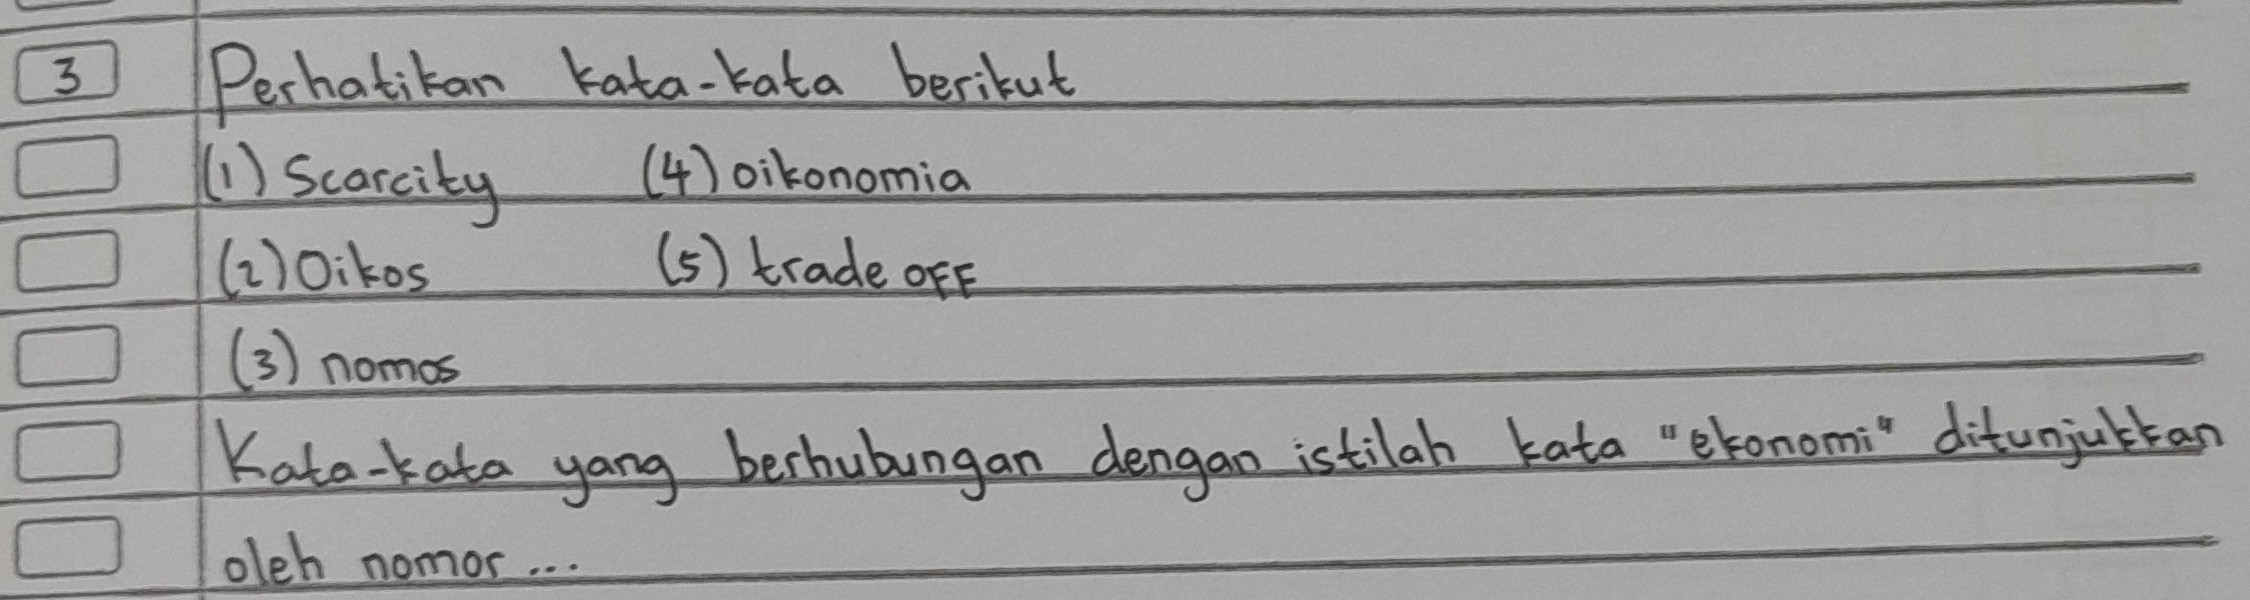 3 Perhatikan kata-kata berikut
(1) Scarcity (4) oikonomia
(2) Oikos (5) trade OFF
(3) nomos
Kata-kata yang berhubungan dengan istilah kata "ekonomi" ditunjukkan
oleh nomor ...